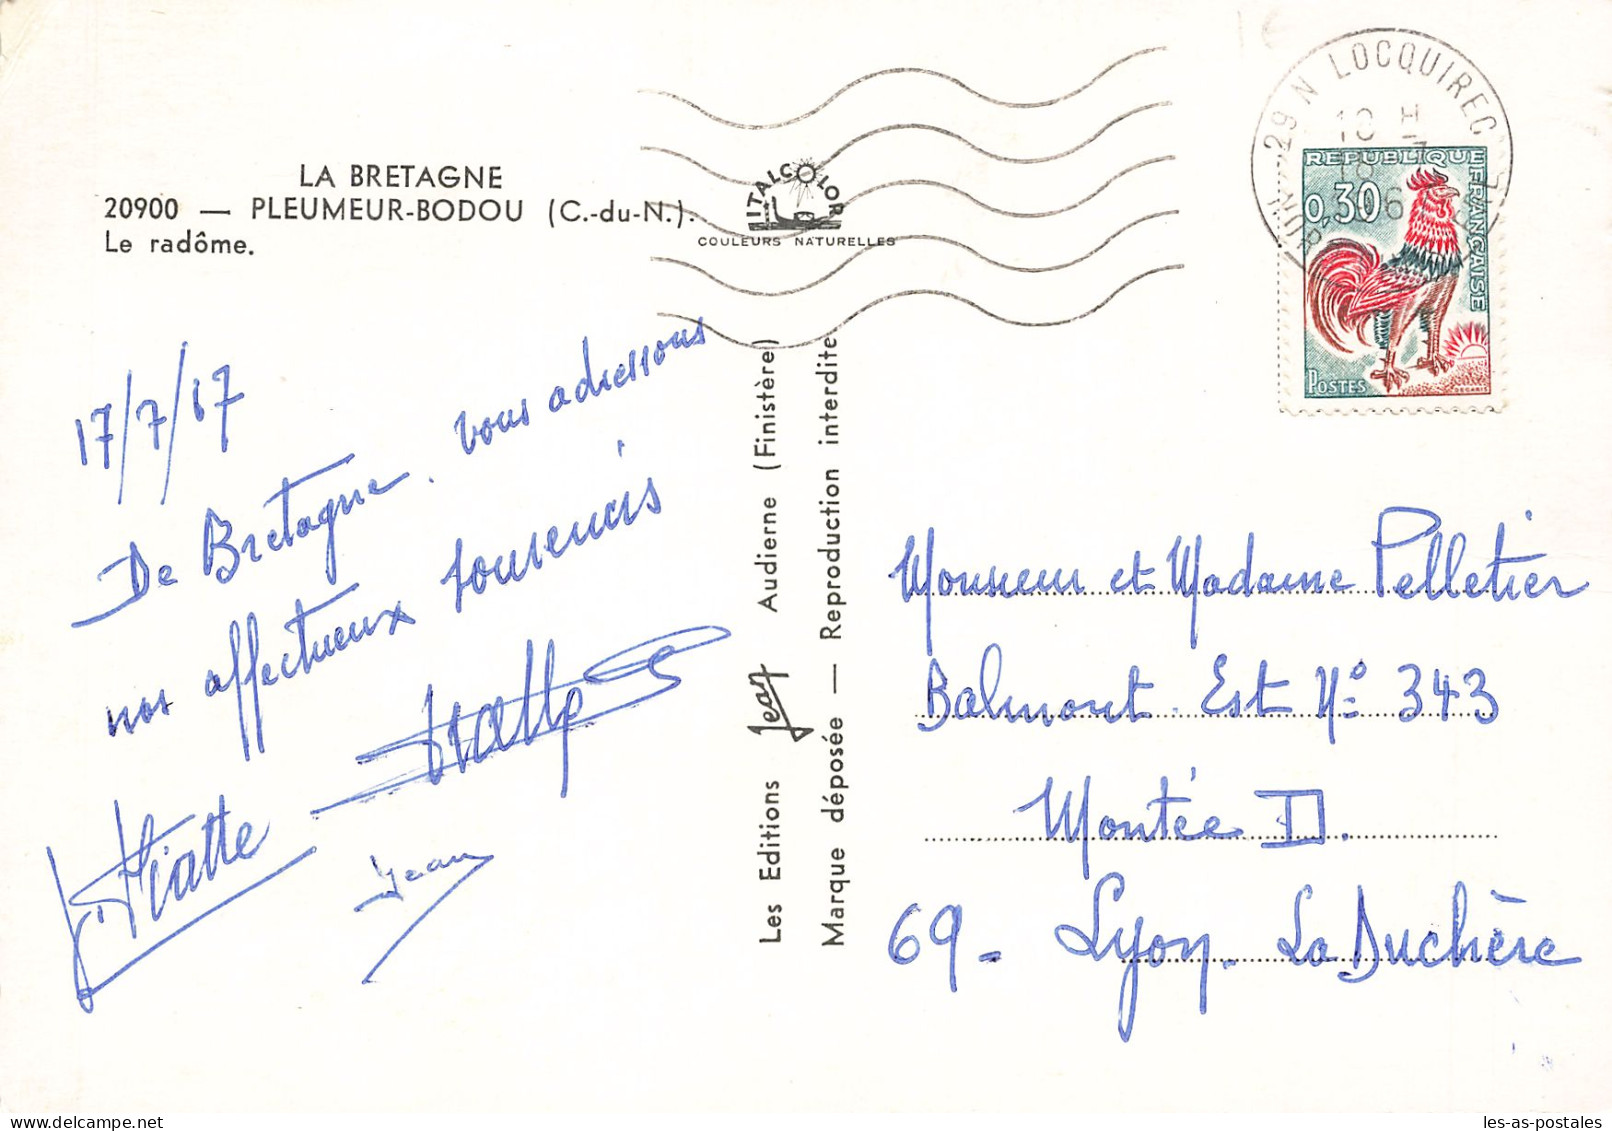 LA BRETAGNE
20900 — PLEUMEUR-BODOU (C.-du-N.).
Le radôme.
ITALCOLOR
COULEURS NATURELLES
29 N LOCQUIREC
10 H
18 - 7
REPUBLIQUE FRANÇAISE
0,30
POSTES
17/7/67
De Bretagne, vous adressons
nos affectueux souvenirs
Jean
Les Editions Jean Audierne (Finistère)
Marque déposée — Reproduction interdite
Monsieur et Madame Pelletier
Balmont Est N° 343
Montée D.
69 - Lyon - La Duchère
les-as-postales